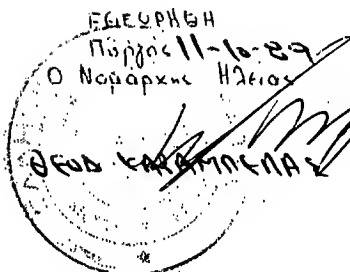 ΕΘΕΩΡΗΘΗ
Πύργος 11-10-89
Ο Νομάρχης Ηλείας
ΘΕΟΔ ΚΑΡΑΜΠΕΛΑΣ